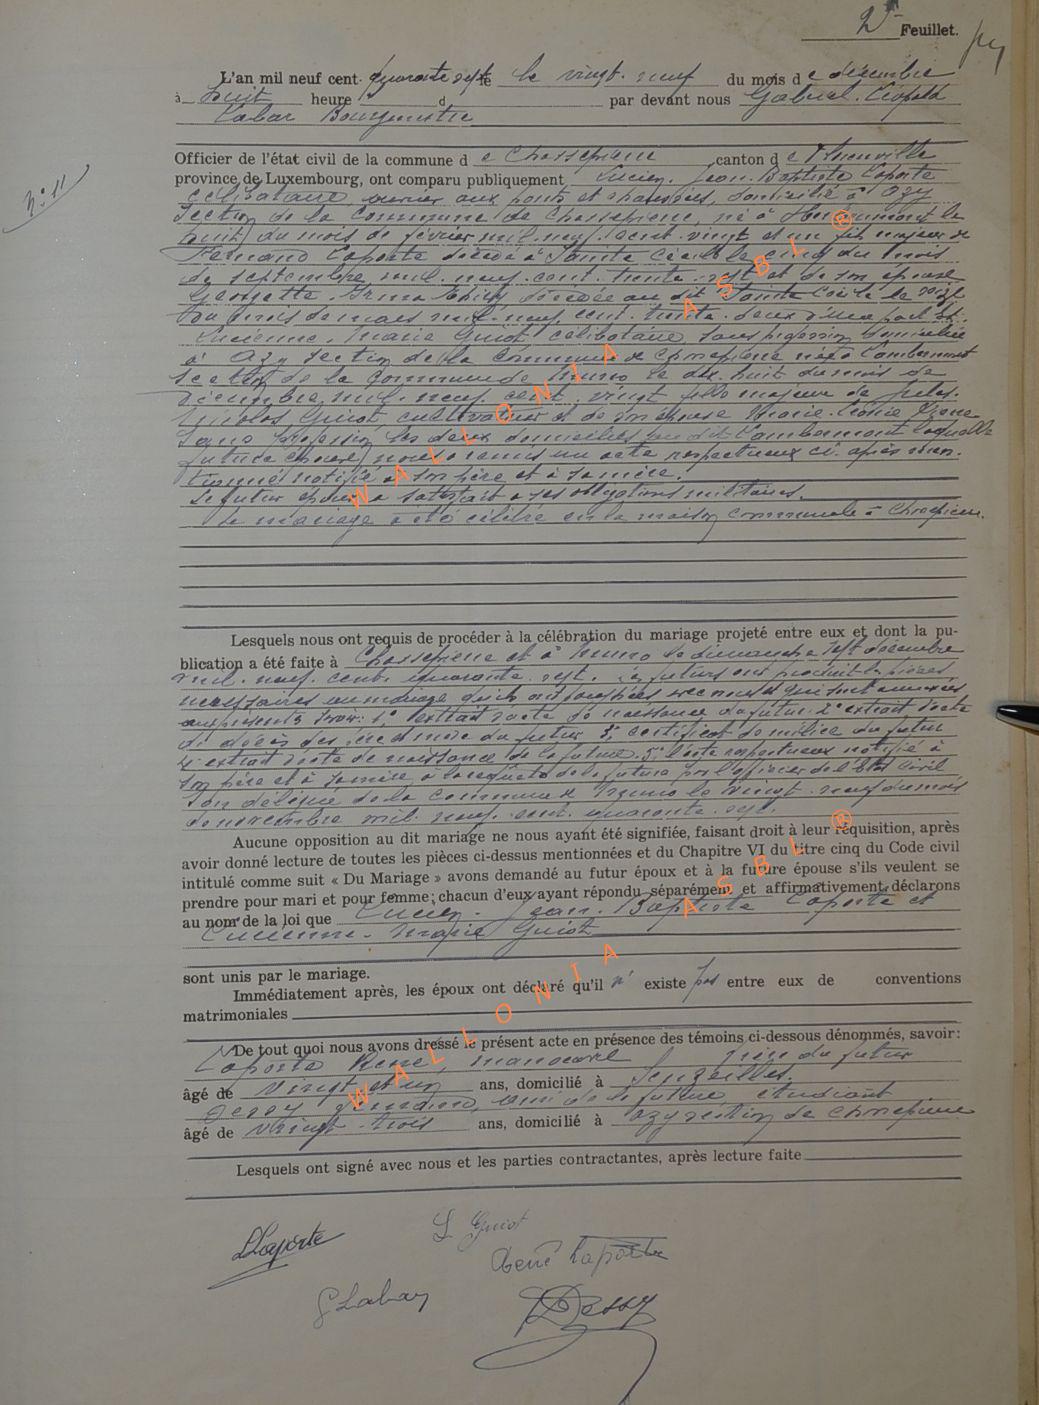 2e Feuillet.
L'an mil neuf cent quarante sept le vingt-neuf du mois de décembre
à huit heure d par devant nous Gabriel Léopold
Labar Bourgmestre
N° 11
Officier de l'état civil de la commune de Chassepierre canton de Florenville
province de Luxembourg, ont comparu publiquement Lucien-Jean-Baptiste Laporte
célibataire, ouvrier aux ponts et chaussées, domicilié à Azy
section de la commune de Chassepierre, né à Herbeumont le
huit du mois de février mil-neuf-cent-vingt et un fils majeur de
Fernand Laporte décédé à Sainte Cécile le cinq du mois
de septembre mil-neuf-cent-trente-sept et de son épouse
Georgette-Irma décédée au dit Sainte Cécile le
du mois de mars mil-neuf-cent-trente-deux d'une part et
Lucienne-Marie Guiot célibataire, sans profession domiciliée
à Azy section de la commune de Chassepierre née à Lambermont
section de la commune de Muno le dix-huit du mois de
décembre mil-neuf-cent-vingt fille majeure de Jules-
Nicolas Guiot, cultivateur et de son épouse Marie-Léonie
sans profession, les deux domiciliés au dit Lambermont laquelle
future épouse nous a remis un acte respectueux ci-après men-
tionné notifié à son père et à sa mère.
Le futur époux a satisfait à ses obligations militaires.
Le mariage a été célébré en la maison communale à Chassepierre.
Lesquels nous ont requis de procéder à la célébration du mariage projeté entre eux et dont la pu-
blication a été faite à Chassepierre et à Muno le dimanche sept décembre
mil-neuf-cent-quarante-sept. Les futurs ont produit les pièces
nécessaires au mariage qu'ils ont paraphées reconnues et qui sont annexées
aux présentes savoir: 1° l'extrait d'acte de naissance du futur 2° extrait d'acte
de décès des père et mère du futur 3° certificat de milice du futur
4° extrait d'acte de naissance de la future. 5° l'acte respectueux notifié à
son père et à sa mère à la requête de la future par l'officier de l'Etat civil
son délégué de la commune de Muno le vingt-neuf du mois
de novembre mil-neuf-cent-quarante-sept.
Aucune opposition au dit mariage ne nous ayant été signifiée, faisant droit à leur réquisition, après
avoir donné lecture de toutes les pièces ci-dessus mentionnées et du Chapitre VI du titre cinq du Code civil
intitulé comme suit « Du Mariage » avons demandé au futur époux et à la future épouse s'ils veulent se
prendre pour mari et pour femme; chacun d'eux ayant répondu séparément et affirmativement, déclarons
au nom de la loi que Lucien-Jean-Baptiste Laporte et
Lucienne-Marie Guiot
sont unis par le mariage.
Immédiatement après, les époux ont déclaré qu'il n'existe pas entre eux de conventions
matrimoniales
De tout quoi nous avons dressé le présent acte en présence des témoins ci-dessous dénommés, savoir:
Laporte René, manœuvre frère du futur
âgé de vingt et un ans, domicilié à Senzeilles,
Dessy ami de la future, étudiant
âgé de vingt-trois ans, domicilié à Azy section de Chassepierre
Lesquels ont signé avec nous et les parties contractantes, après lecture faite
LLaporte
L Guiot
René Laporte
G Labar
Dessy
WALLONIA ASBL ®
WALLONIA ASBL ®